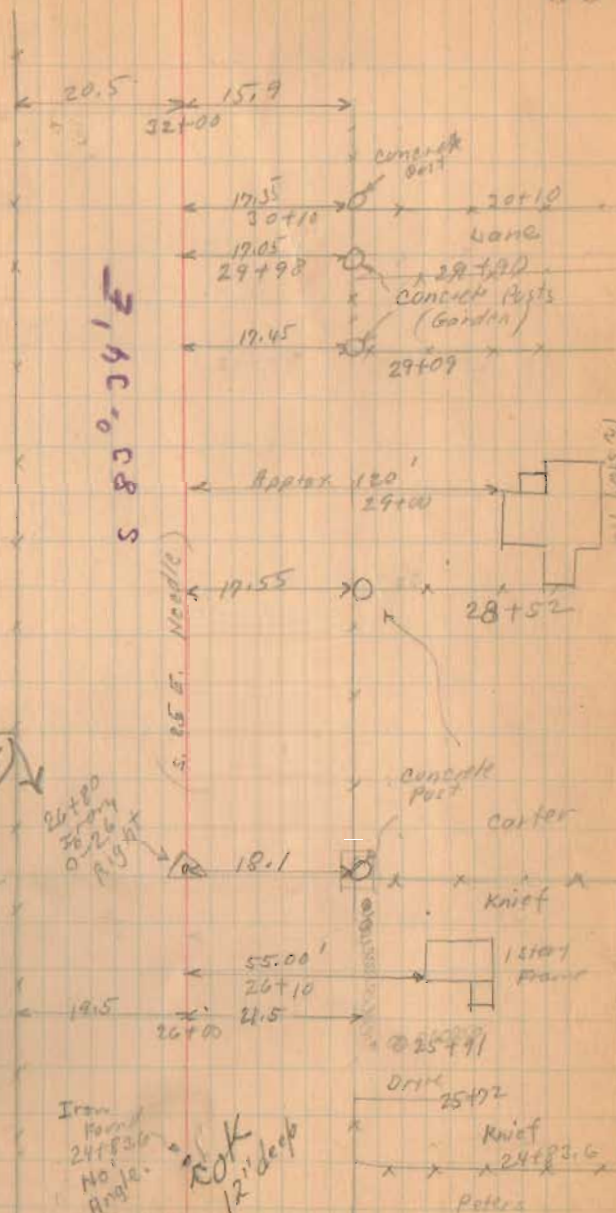 20.5
15.9
32+00
Concrete
Post
17.35
30+10
30+10
Lane
17.05
29+98
29+90
Concrete Posts
(Garden)
17.45
29+09
S 83°-34' E
Approx. 120'
29+00
(S. 85 E. Needle)
17.55
28+52
Concrete
Post
Carter
26+80
Right
18.1
Knief
55.00'
26+10
1 Story
Frame
19.5
26+00
21.5
25+91
Drive
25+72
Iron
Found
24+83.6
No
Angle.
OK
12" deep
Knief
24+83.6
Peters